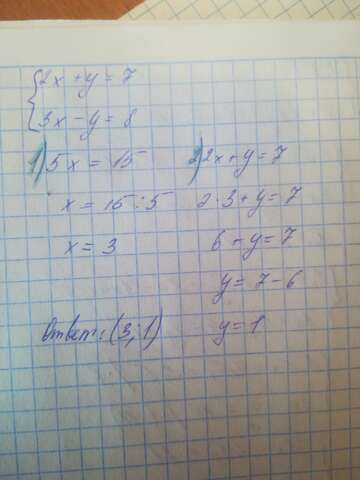 2x + y = 7
3x - y = 8
1) 5x = 15
x = 15 : 5
x = 3
2) 2x + y = 7
2 · 3 + y = 7
6 + y = 7
y = 7 - 6
y = 1
Ответ: (3, 1)